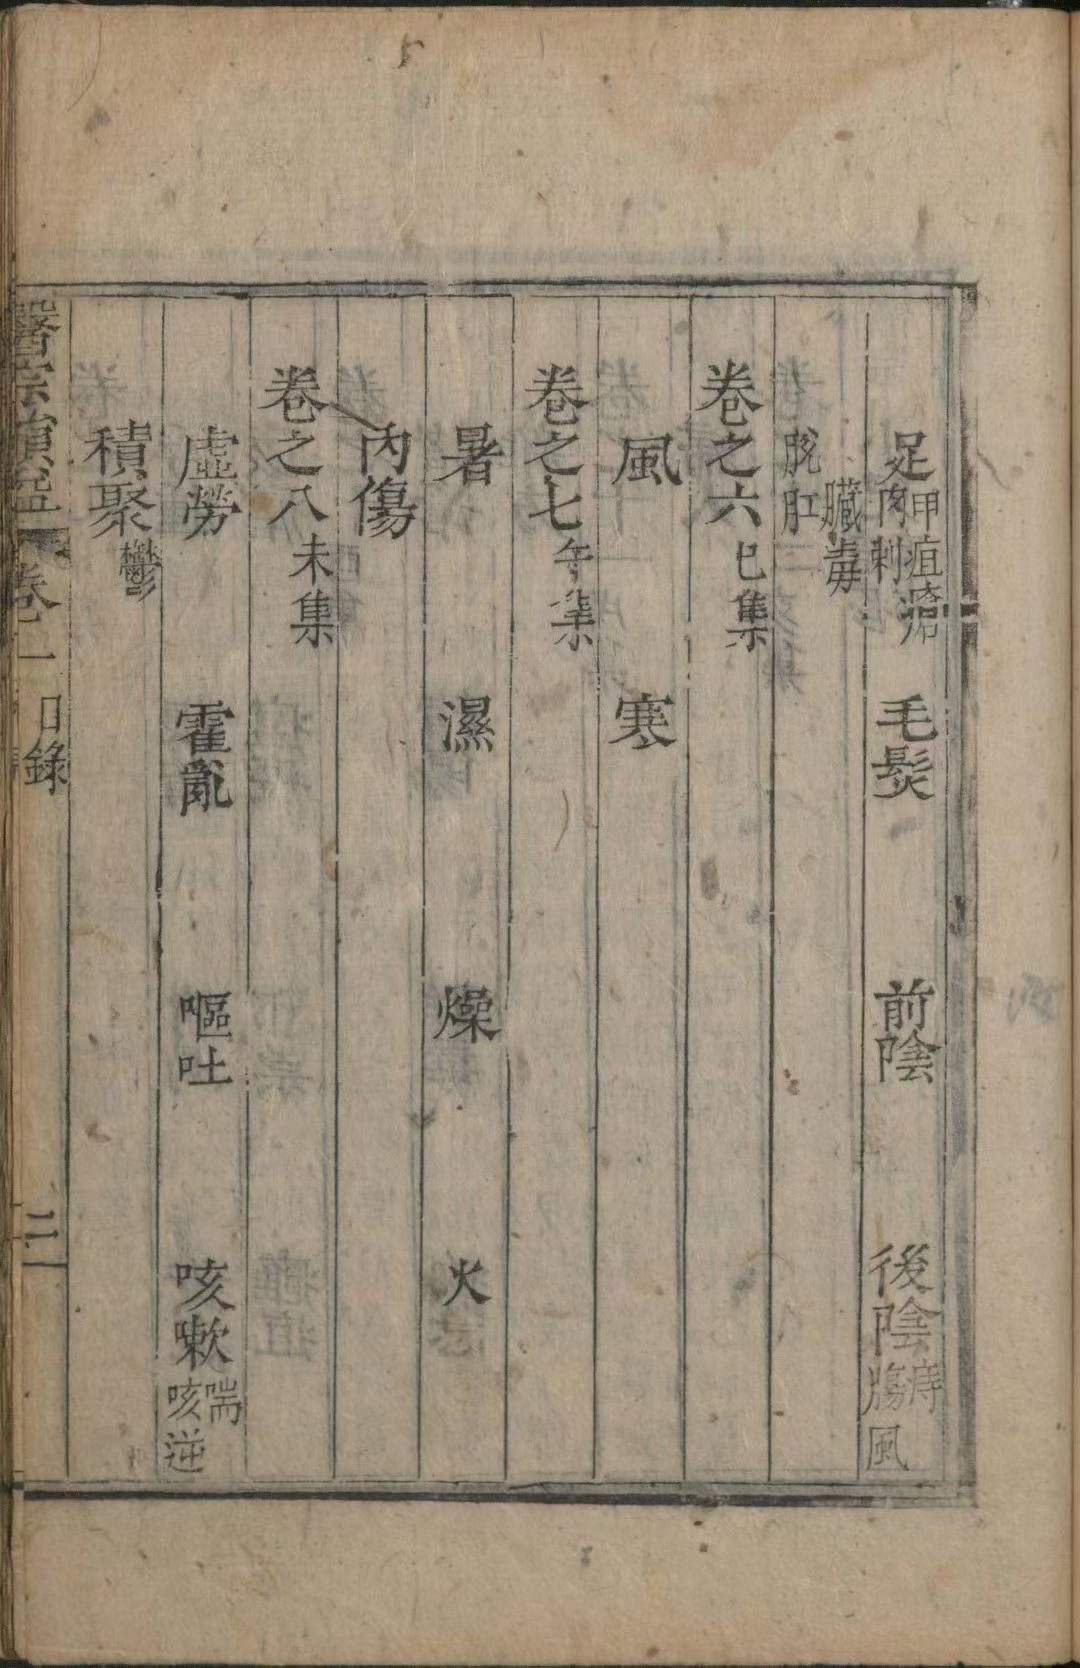 足甲疽瘡肉刺　毛髮　前陰　後陰痔腸風
臟毒脫肛
卷之六巳集
風　寒
卷之七午集
暑　濕　燥　火
內傷
卷之八未集
虛勞　霍亂　嘔吐　咳嗽喘咳逆
積聚鬱
醫宗　卷一　目錄　二